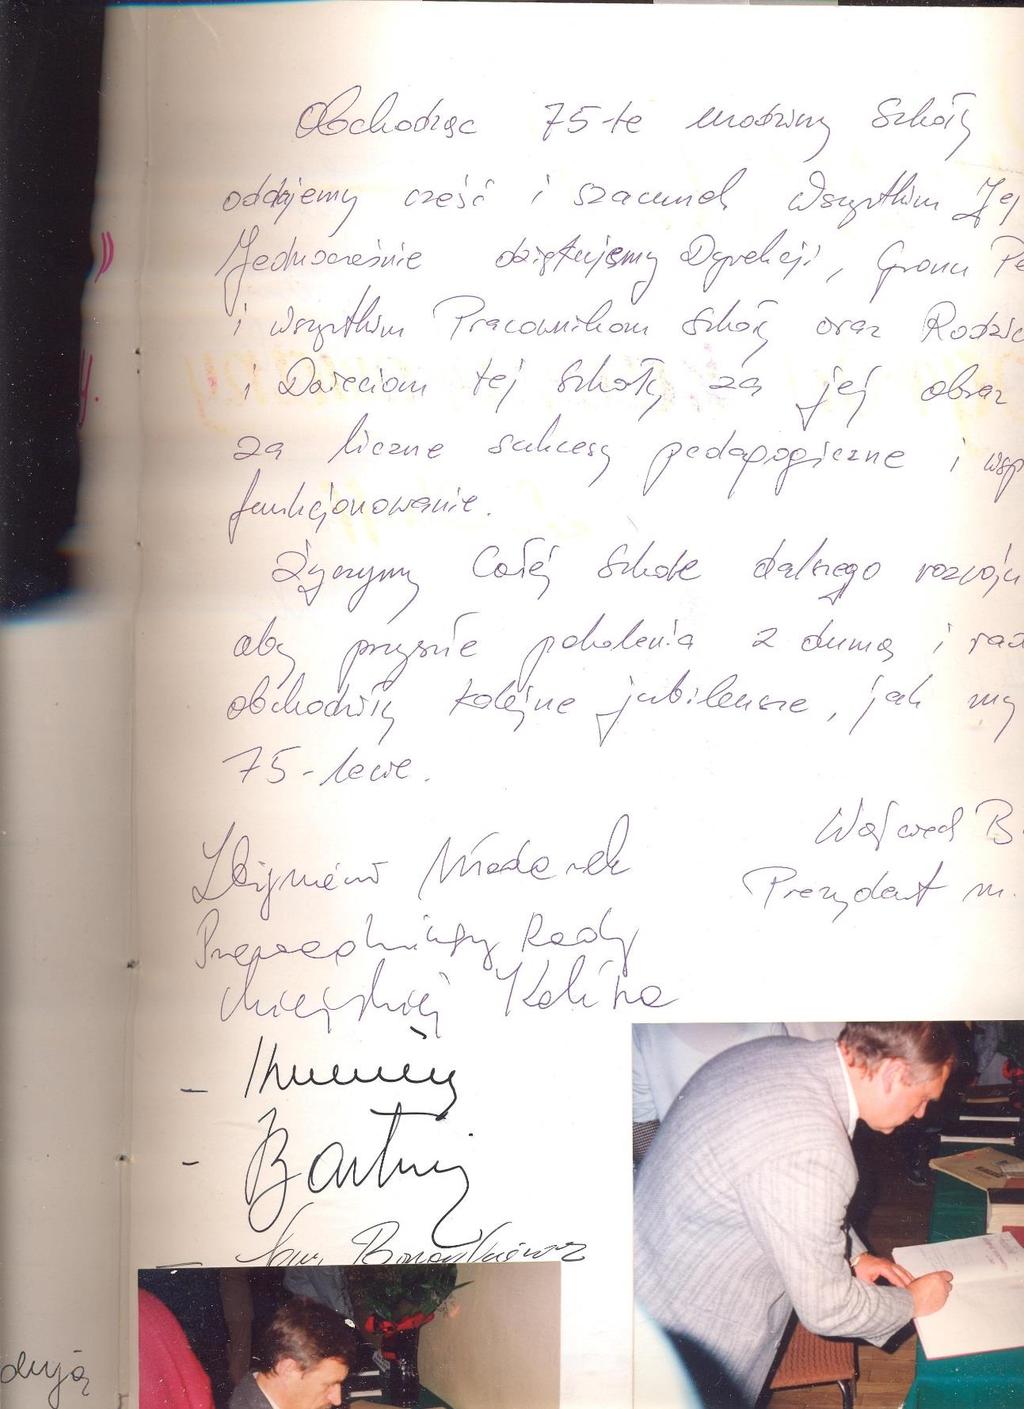 Obchodząc 75-te urodziny Szkoły
oddajemy cześć i szacunek Wszystkim Jej
Jednocześnie dziękujemy Dyrekcji, Gronu Pe
i wszystkim Pracownikom Szkoły oraz Rodzic
i Dzieciom tej Szkoły za jej obraz
za liczne sukcesy pedagogiczne i wsp
funkcjonowanie.
Życzymy Całej Szkole dalszego rozwoju
aby przyszłe pokolenia z dumą i rad
obchodziły kolejne jubileusze, jak my
75-lecie.
Wojciech B
Prezydent m.
Zbigniew
Przewodniczący Rady
Miejskiej Konina
dują